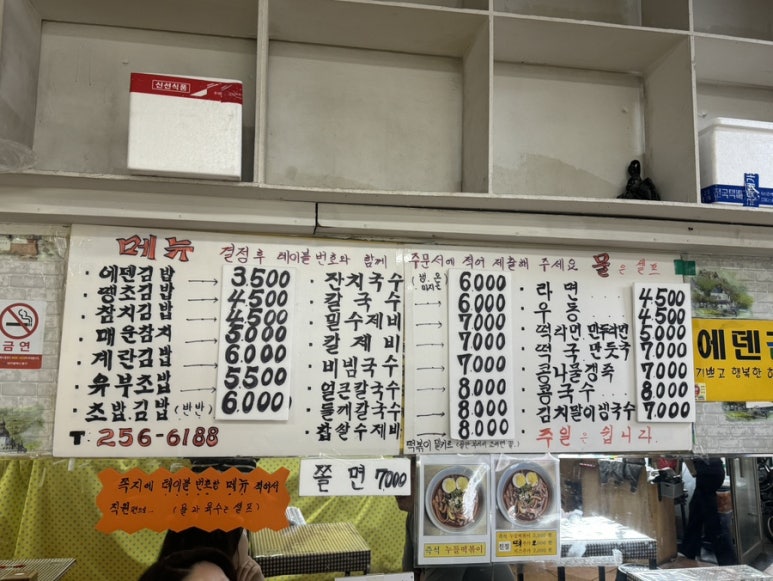 신선식품
메뉴 결정후 테이블 번호와 함께 주문서에 적어 제출해 주세요 물은 셀프
에덴김밥 → 3.500
땡초김밥 → 4.500
참치김밥 → 4.500
매운참치 → 5.000
계란김밥 → 6.000
유부초밥 → 5.500
초밥김밥 (반반) → 6.000
T. 256-6188
잔치국수 6.000
칼국수 6.000
밀수제비 7.000
칼제비 7.000
비빔국수 7.000
얼큰칼국수 8.000
들깨칼국수 8.000
찹쌀수제비 8.000
라면 4.500
우동 4.500
떡라면, 만두라면 5.000
떡국, 만둣국 7.000
콩나물갱죽 7.000
콩국수 8.000
김치말이국수 7.000
주일은 쉽니다.
금연
에덴
기쁘고 행복한
쪽지에 테이블 번호랑 메뉴 적어서
(물과 육수는 셀프)
쫄면 7,000
즉석 누들떡볶이
즉석 누들떡볶이